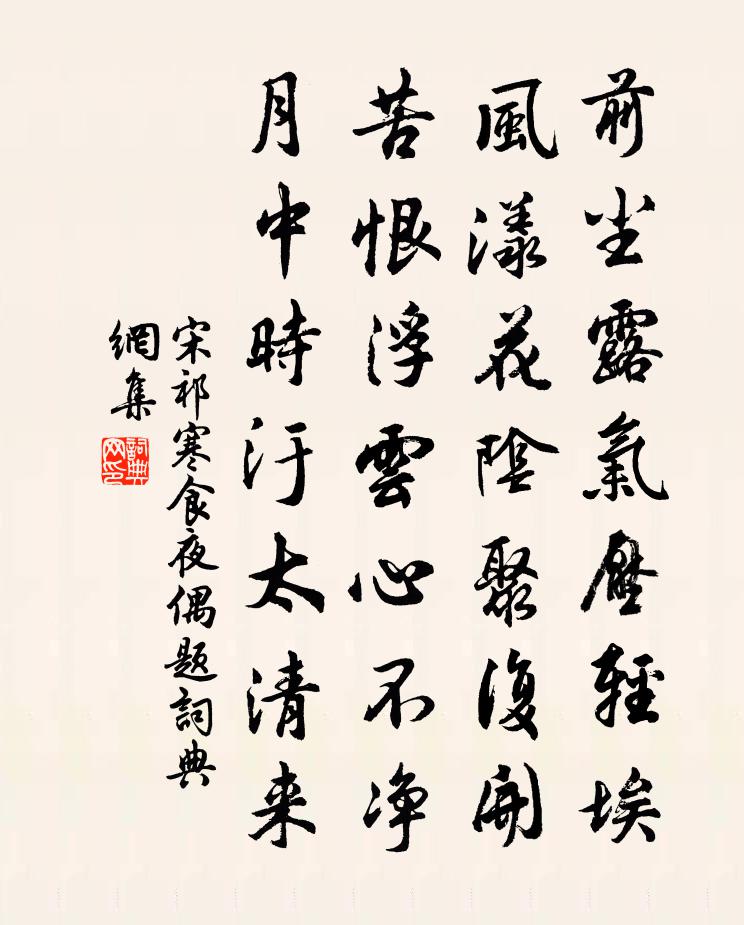 前坐露氣壓輕埃
風漾花陰聚復開
苦恨浮雲心不净
月中時汙太清来
宋祁寒食夜偶題詞典
網集
詞典
网印